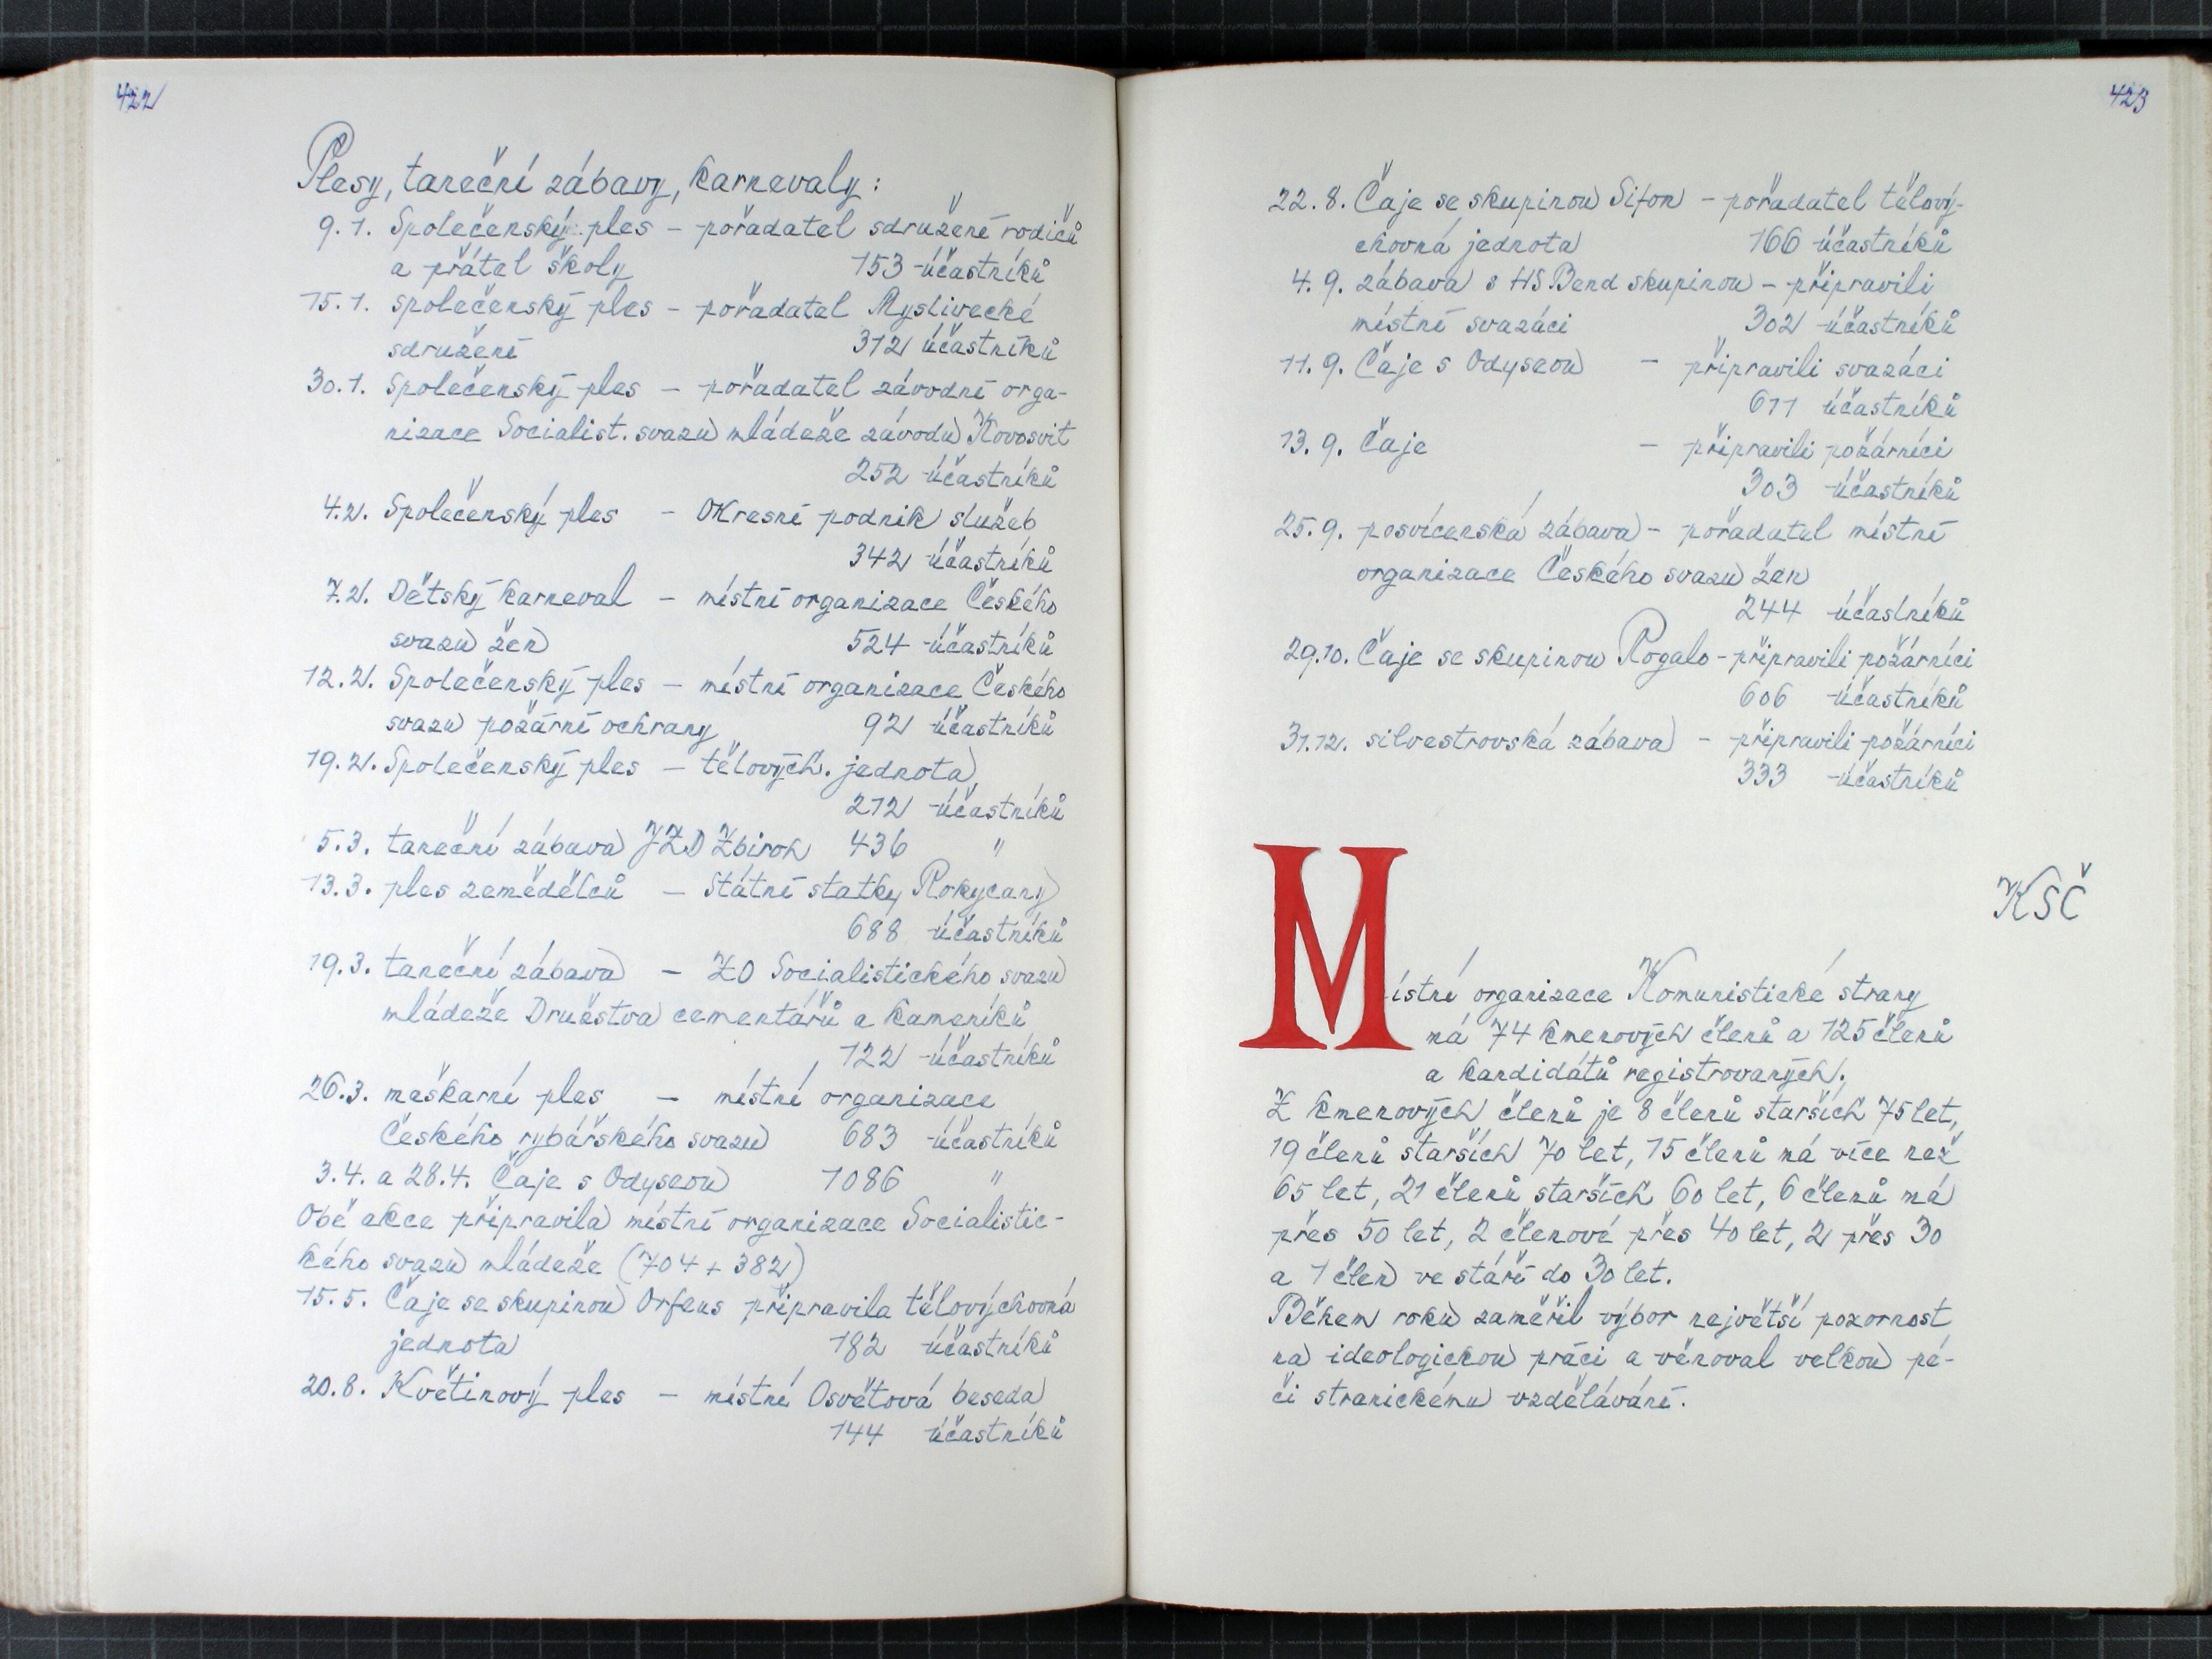 422
Plesy, taneční zábavy, karnevaly:
9.1. Společenský ples – pořadatel sdružení rodičů
a přátel školy 153 účastníků
15.1. společenský ples – pořadatel Myslivecké
sdružení 312 účastníků
30.1. Společenský ples – pořadatel závodní orga-
nizace Socialist. svazu mládeže závodu Kovosvit
252 účastníků
4.2. Společenský ples – Okresní podnik služeb
342 účastníků
7.2. Dětský karneval – místní organizace Českého
svazu žen 524 účastníků
12.2. Společenský ples – místní organizace Českého
svazu požární ochrany 92 účastníků
19.2. Společenský ples – tělových. jednota
212 účastníků
5.3. taneční zábava JZD Zbiroh 436 "
13.3. ples zemědělců – Státní statky Rokycany
688 účastníků
19.3. taneční zábava – ZO Socialistického svazu
mládeže Družstva cementářů a kameníků
122 účastníků
26.3. maškarní ples – místní organizace
Českého rybářského svazu 683 účastníků
3.4. a 28.4. Čaje s Odyseou 1086 "
Obě akce připravila místní organizace Socialistic-
kého svazu mládeže (704 + 382)
15.5. Čaje se skupinou Orfeus připravila tělovýchovná
jednota 182 účastníků
20.8. Květinový ples – místní Osvětová beseda
144 účastníků
423
22.8. Čaje se skupinou Sifon – pořadatel tělový-
chovná jednota 166 účastníků
4.9. zábava s HS Bend skupinou – připravili
místní svazáci 302 účastníků
11.9. Čaje s Odyseou – připravili svazáci
611 účastníků
13.9. Čaje – připravili požárníci
303 účastníků
25.9. posvícenská zábava – pořadatel místní
organizace Českého svazu žen
244 účastníků
29.10. Čaje se skupinou Rogalo – připravili požárníci
606 účastníků
31.12. silvestrovská zábava – připravili požárníci
333 účastníků
KSČ
Místní organizace Komunistické strany
má 74 kmenových členů a 125 členů
a kandidátů registrovaných.
Z kmenových členů je 8 členů starších 75 let,
19 členů starších 70 let, 15 členů má více než
65 let, 21 členů starších 60 let, 6 členů má
přes 50 let, 2 členové přes 40 let, 2 přes 30
a 1 člen ve stáří do 30 let.
Během roku zaměřil výbor největší pozornost
na ideologickou práci a věnoval velkou pé-
či stranickému vzdělávání.